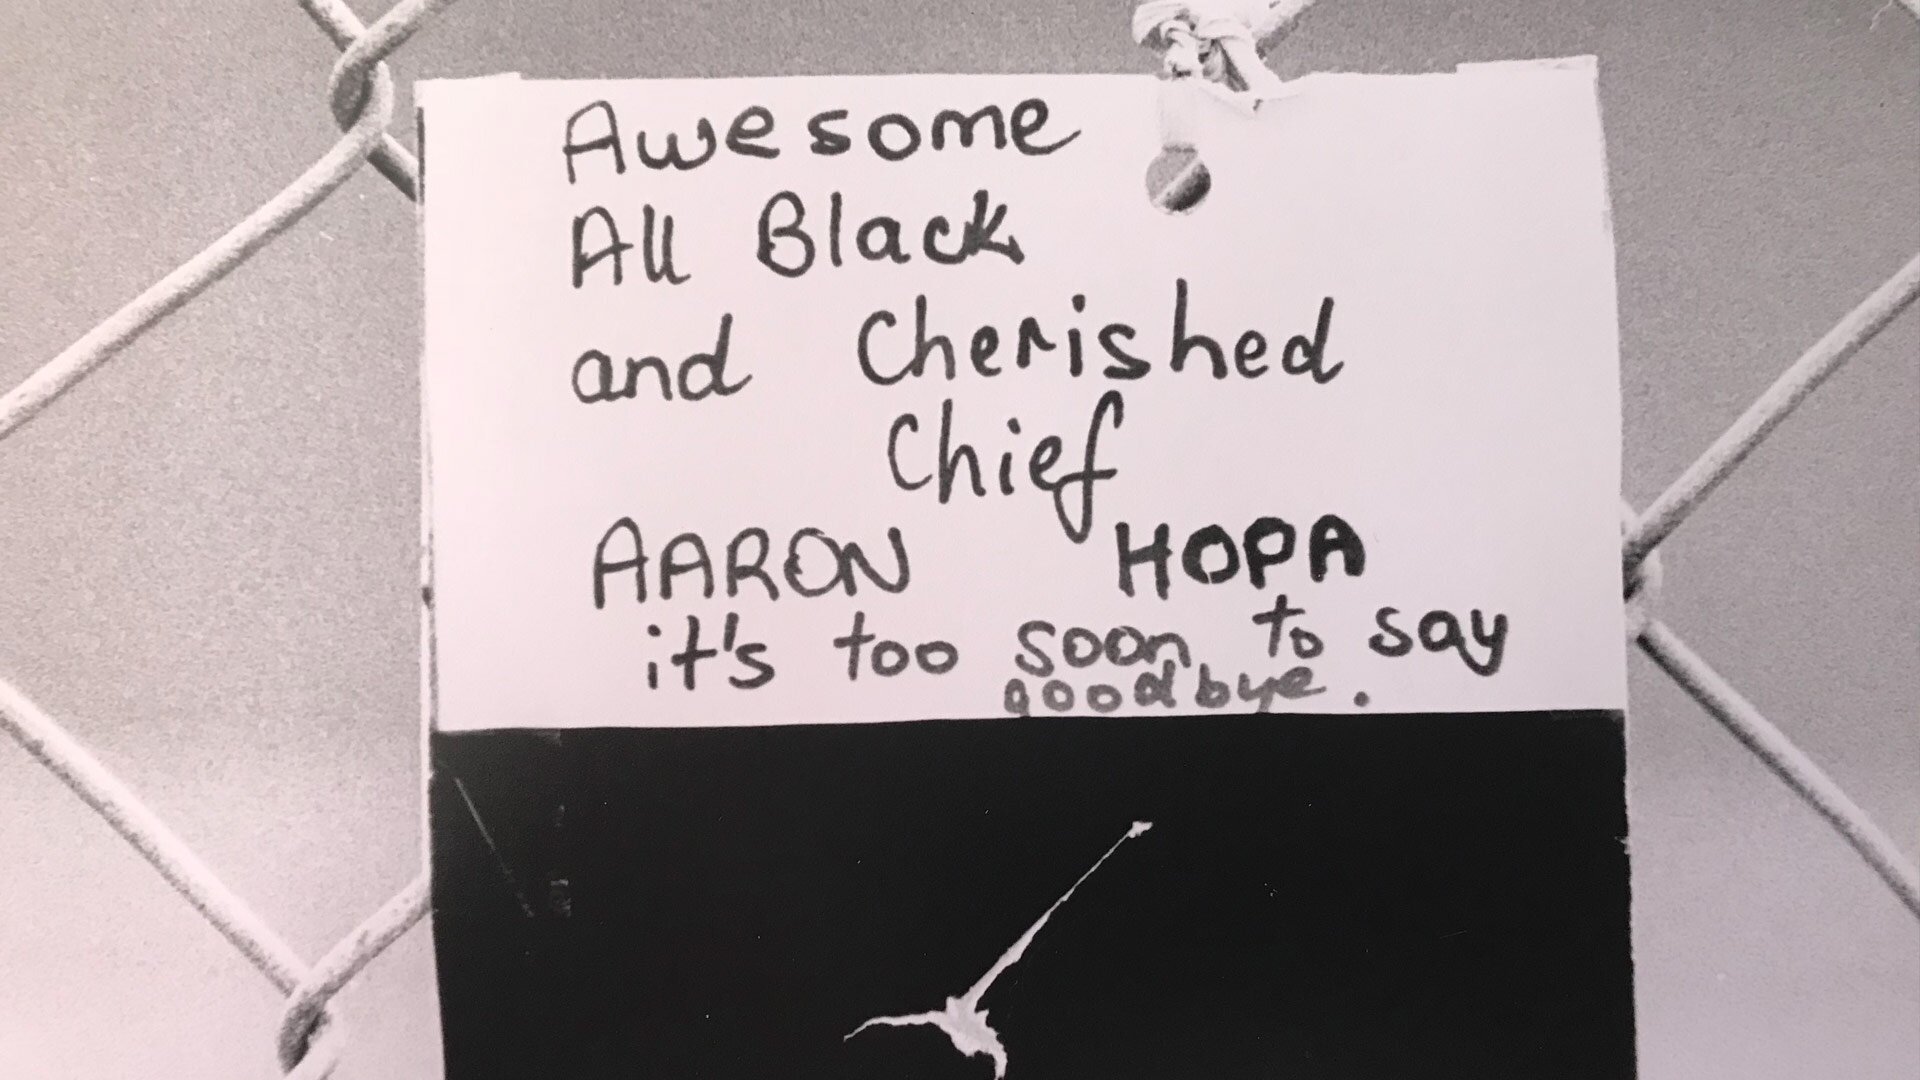 Awesome
All Black
and Cherished
Chief
AARON HOPA
it's too soon to say
goodbye.